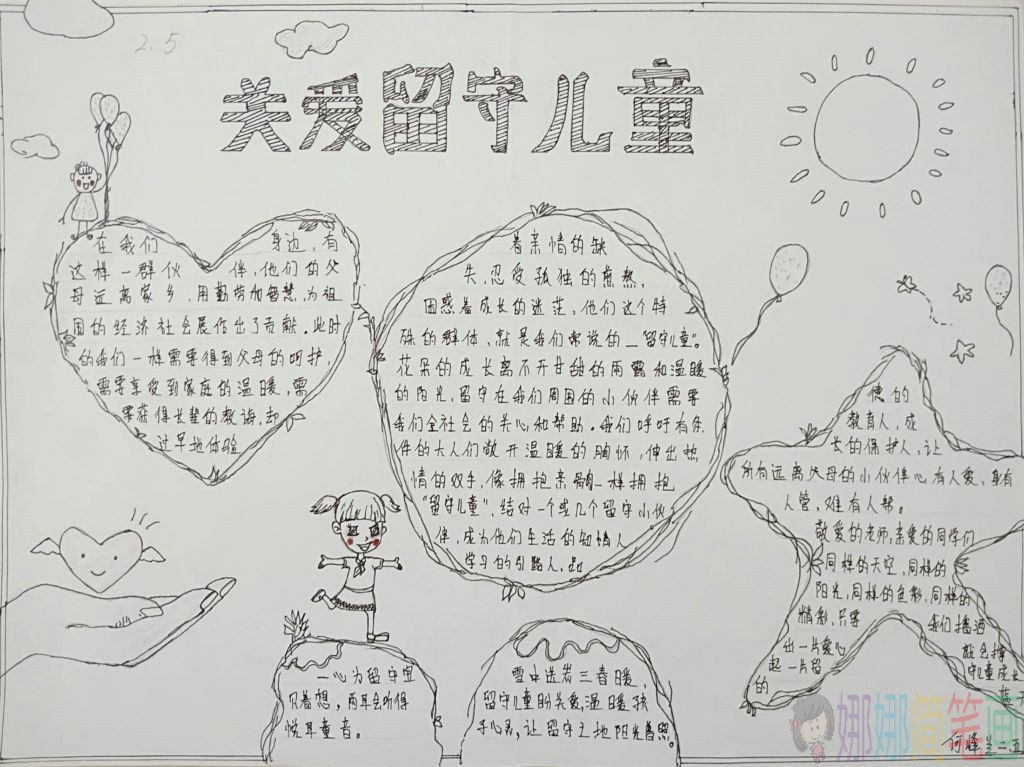 2.5
关爱留守儿童
在我们 身边,有
这样一群伙 伴,他们的父
母远离家乡,用勤劳加智慧,为祖
国的经济社会展作出了贡献。此时
的我们一样需要得到父母的呵护,
需要享受到家庭的温暖,需
要获得长辈的教诲,却
过早地体验
着亲情的缺
失,忍受孤独的煎熬,
困惑着成长的迷茫,他们这个特
殊的群体,就是我们常说的—"留守儿童"。
花朵的成长离不开甘甜的雨露和温暖
的阳光,留守在我们周围的小伙伴需要
我们全社会的关心和帮助。我们呼吁有条
件的大人们敞开温暖的胸怀,伸出热
情的双手,像拥抱亲骨肉一样拥抱
"留守儿童",结对一个或几个留守小伙
伴,成为他们生活的知情人
学习的引路人,品
德的
教育人,成
长的保护人,让
所有远离父母的小伙伴心有人爱,身有
人管,难有人帮。
敬爱的老师,亲爱的同学们
同样的天空,同样的
阳光,同样的色彩,同样的
精彩,只要 我们播洒
出一片爱心 就会撑
起一片留 守儿童成长
的 蓝天
一心为留守宝
贝着想,两耳会听得
悦耳童音。
雪中送炭三春暖,
留守儿童盼关爱,温暖孩
子心灵,让留守之地阳光普照。
娜娜简笔画
二.五